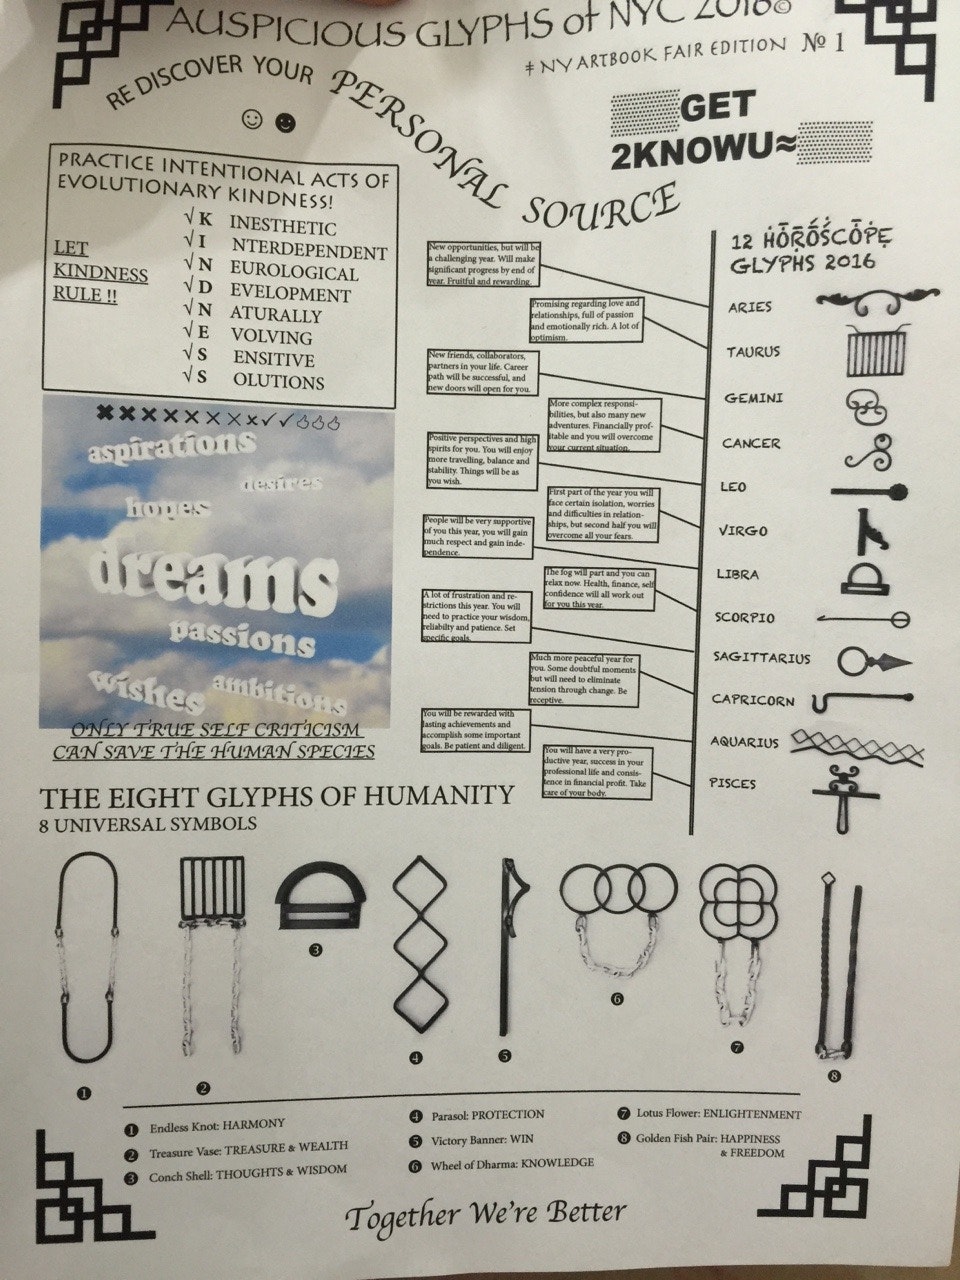 AUSPICIOUS GLYPHS of NYC 2016©
‡ NY ARTBOOK FAIR EDITION № 1
RE DISCOVER YOUR PERSONAL SOURCE
GET
2KNOWU≈
PRACTICE INTENTIONAL ACTS OF
EVOLUTIONARY KINDNESS!
LET
KINDNESS
RULE !!
√ K INESTHETIC
√ I NTERDEPENDENT
√ N EUROLOGICAL
√ D EVELOPMENT
√ N ATURALLY
√ E VOLVING
√ S ENSITIVE
√ S OLUTIONS
aspirations
desires
hopes
dreams
passions
wishes
ambitions
ONLY TRUE SELF CRITICISM
CAN SAVE THE HUMAN SPECIES
12 HOROSCOPE
GLYPHS 2016
New opportunities, but will be
a challenging year. Will make
significant progress by end of
year. Fruitful and rewarding.
ARIES
Promising regarding love and
relationships, full of passion
and emotionally rich. A lot of
optimism.
TAURUS
New friends, collaborators,
partners in your life. Career
path will be successful, and
new doors will open for you.
GEMINI
More complex responsi-
bilities, but also many new
adventures. Financially prof-
itable and you will overcome
your current situation.
CANCER
Positive perspectives and high
spirits for you. You will enjoy
more travelling, balance and
stability. Things will be as
you wish.
LEO
First part of the year you will
face certain isolation, worries
and difficulties in relation-
ships, but second half you will
overcome all your fears.
VIRGO
People will be very supportive
of you this year, you will gain
much respect and gain inde-
pendence.
LIBRA
The fog will part and you can
relax now. Health, finance, self
confidence will all work out
for you this year.
SCORPIO
A lot of frustration and re-
strictions this year. You will
need to practice your wisdom,
reliabilty and patience. Set
specific goals.
SAGITTARIUS
Much more peaceful year for
you. Some doubtful moments
but will need to eliminate
tension through change. Be
receptive.
CAPRICORN
You will be rewarded with
lasting achievements and
accomplish some important
goals. Be patient and diligent.
AQUARIUS
You will have a very pro-
ductive year, success in your
professional life and consis-
tence in financial profit. Take
care of your body.
PISCES
THE EIGHT GLYPHS OF HUMANITY
8 UNIVERSAL SYMBOLS
❶
❷
❸
❹
❺
❻
❼
❽
❶ Endless Knot: HARMONY
❷ Treasure Vase: TREASURE & WEALTH
❸ Conch Shell: THOUGHTS & WISDOM
❹ Parasol: PROTECTION
❺ Victory Banner: WIN
❻ Wheel of Dharma: KNOWLEDGE
❼ Lotus Flower: ENLIGHTENMENT
❽ Golden Fish Pair: HAPPINESS
& FREEDOM
Together We're Better